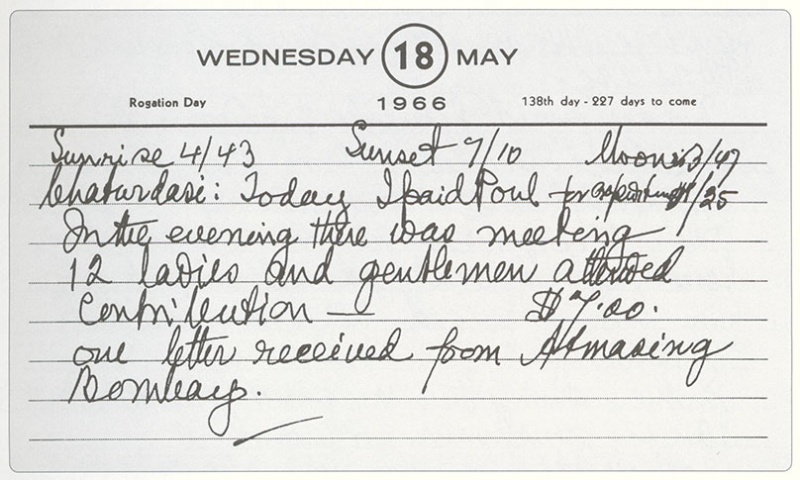 WEDNESDAY 18 MAY
Rogation Day 1966 138th day - 227 days to come
Sunrise 4/43 Sunset 7/10 Moonris 3/47
Chaturdasi: Today I paid Poul for
In the evening there was meeting
12 ladies and gentlemen attended
Contribution — $7.00.
one letter received from Atmasing
Bombay.